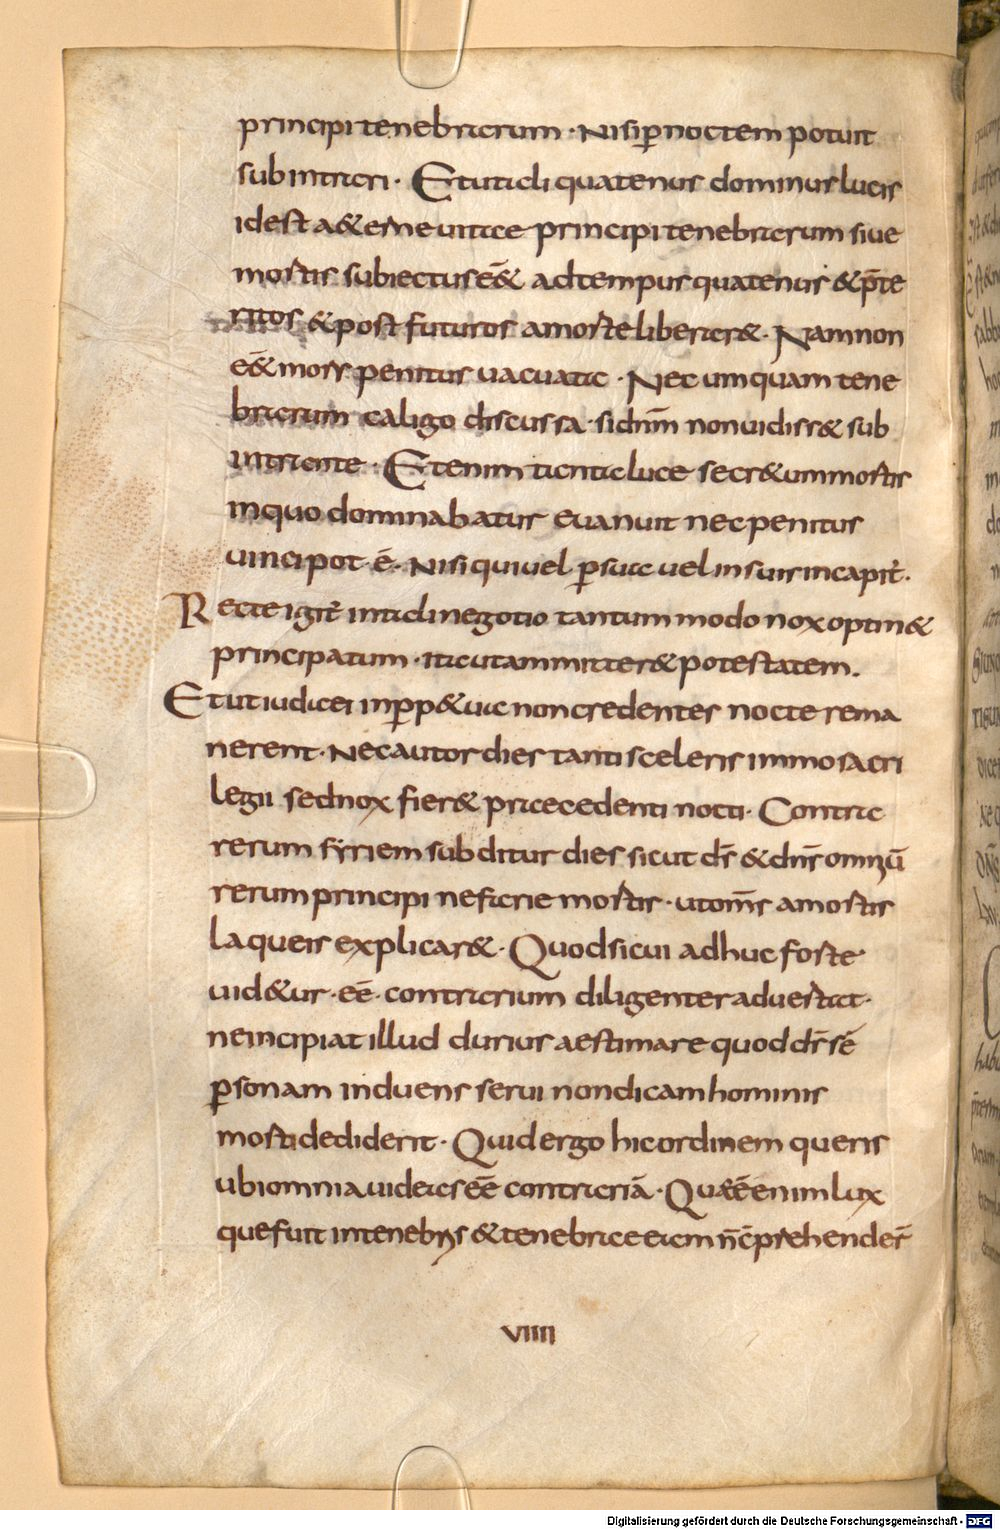 principi tenebrarum · Nisi ꝑ noctem potuit
subintrari · Et utidli quatenus dominus lucis
id est a&erne uitae principi tenebrarum siue
mortis subiectus eē& ad tempus quatenus & p̄te
ritos & post futuros a morte liberar& · Nam non
ē& mors penitus uacuata · Nec umquam tene
brarum caligo discussa · si dnm̄ non uidiss& sub
intrante · Etenim tanta luce secr&um mortis
in quo dominabatur euanuit nec penitus
uinci pot ē · Nisi qui uel ꝑ sua uel in suis incapit̄ ·
Recte igit̄ in tali negotio tantummodo nox optin&
principatum · ita ut ammitter& potestatem .
Et ut iudaei in ꝑp&ua non credentes nocte rema
nerent · Nec autor dies tanti sceleris immo sacri
legii sed nox fier& praecedenti nocti · Contra
rerum syriem subditur dies sicut ds̄ & dns̄ omniū
rerum principi nefarie mortis · ut oms̄ a mortis
laqueis explicar& · Quod si cui adhuc forte
uid&ur · eē · contrarium diligenter aduertat ·
ne incipiat illud durius aestimare quod ds̄ sē
ꝑsonam induens serui non dicam hominis
morti dediderit · Quid ergo hic ordinem queris
ubi omnia uideas eē contrariā · Quae ē enim lux
que fuit in tenebris & tenebrae eam n̄ c̄prehender̄
VIIII
Digitalisierung gefördert durch die Deutsche Forschungsgemeinschaft - DFG